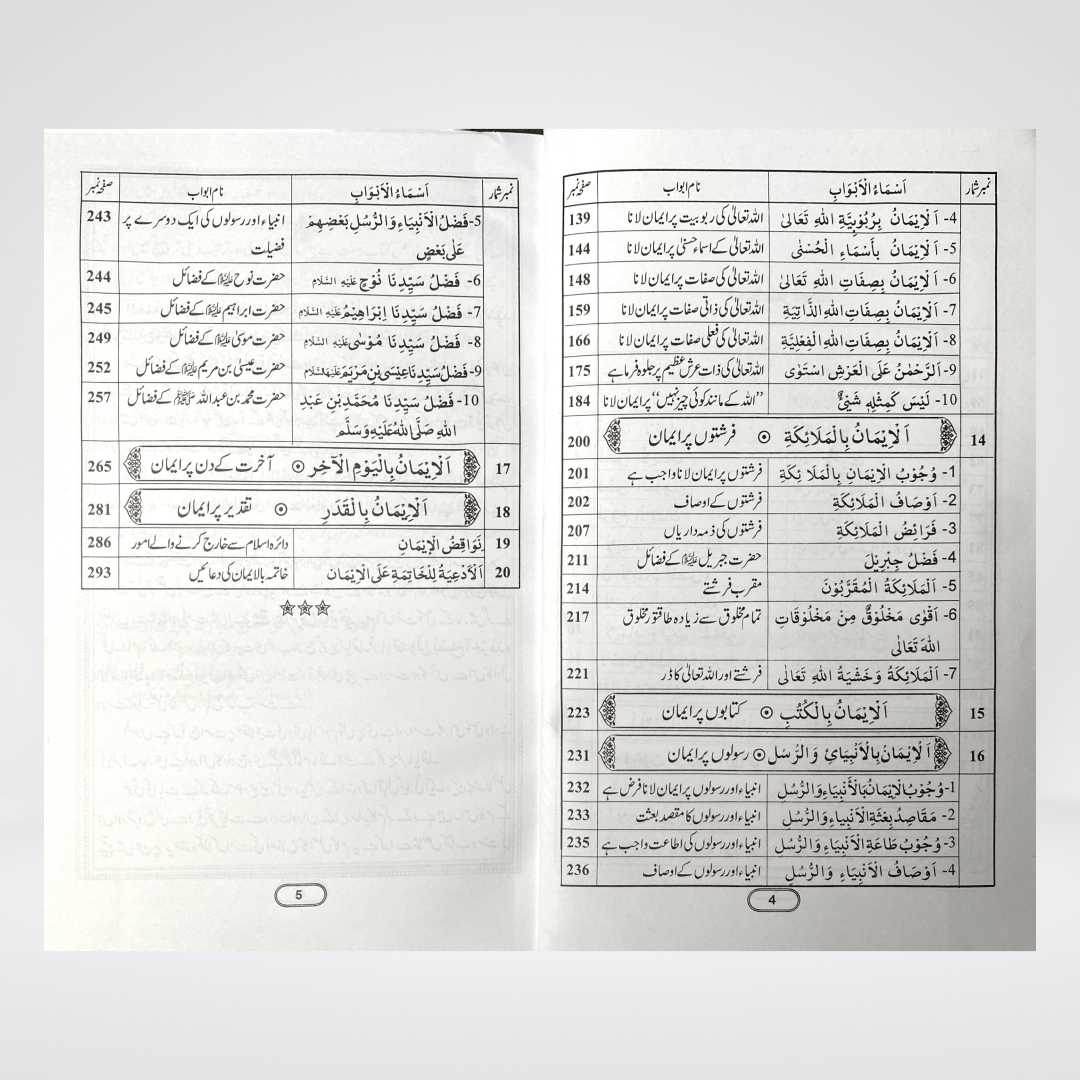 نمبر شمار اَسْمَاءُ الْاَبْوَابِ نام ابواب صفحہ نمبر
4- اَلْاِیْمَانُ بِرُبُوْبِیَّةِ اللهِ تَعَالیٰ اللہ تعالیٰ کی ربوبیت پر ایمان لانا 139
5- اَلْاِیْمَانُ بِأَسْمَاءِ الْحُسْنٰی اللہ تعالیٰ کے اسماء حسنیٰ پر ایمان لانا 144
6- اَلْاِیْمَانُ بِصِفَاتِ اللهِ تَعَالیٰ اللہ تعالیٰ کی صفات پر ایمان لانا 148
7- اَلْاِیْمَانُ بِصِفَاتِ اللهِ الذَّاتِیَّةِ اللہ تعالیٰ کی ذاتی صفات پر ایمان لانا 159
8- اَلْاِیْمَانُ بِصِفَاتِ اللهِ الْفِعْلِیَّةِ اللہ تعالیٰ کی فعلی صفات پر ایمان لانا 166
9- اَلرَّحْمٰنُ عَلَی الْعَرْشِ اسْتَوٰی اللہ تعالیٰ کی ذات عرش عظیم پر جلوہ فرما ہے 175
10- لَیْسَ کَمِثْلِہٖ شَیْئٌ ’’اللہ کے مانند کوئی چیز نہیں‘‘ پر ایمان لانا 184
14 اَلْاِیْمَانُ بِالْمَلَائِکَةِ ⊙ فرشتوں پر ایمان 200
1- وُجُوْبُ الْاِیْمَانِ بِالْمَلَا ئِکَةِ فرشتوں پر ایمان لانا واجب ہے 201
2- اَوْصَافُ الْمَلَائِکَةِ فرشتوں کے اوصاف 202
3- فَرَائِضُ الْمَلَائِکَةِ فرشتوں کی ذمہ داریاں 207
4- فَضْلُ جِبْرِیْلَ حضرت جبریل علیہ السلام کے فضائل 211
5- اَلْمَلَائِکَةُ الْمُقَرَّبُوْنَ مقرب فرشتے 214
6- اَقْوٰی مَخْلُوْقٌ مِنْ مَخْلُوْقَاتِ تمام مخلوق سے زیادہ طاقتور مخلوق 217
اللهَ تَعَالٰی
7- اَلْمَلَائِکَةُ وَخَشْیَةُ اللهِ تَعَالٰی فرشتے اور اللہ تعالیٰ کا ڈر 221
15 اَلْاِیْمَانُ بِالْکُتُبِ ⊙ کتابوں پر ایمان 223
16 اَلْاِیْمَانُ بِالْاَنْبِیَائِ وَالرُّسُل ⊙ رسولوں پر ایمان 231
1- وُجُوْبُ الْاِیْمَانُ بِالْأَنْبِیَاءِ وَالرُّسُلِ انبیاء اور رسولوں پر ایمان لانا فرض ہے 232
2- مَقَاصِدُ بِعْثَةِ الْاَنْبِیَاءِ وَالرُّسُلِ انبیاء اور رسولوں کا مقصد بعثت 233
3- وُجُوْبُ طَاعَةِ الْاَنْبِیَاءِ وَالرُّسُلِ انبیاء اور رسولوں کی اطاعت واجب ہے 235
4- اَوْصَافُ الْاَنْبِیَاءِ وَالرُّسُلِ انبیاء اور رسولوں کے اوصاف 236
4
نمبر شمار اَسْمَاءُ الْاَبْوَابِ نام ابواب صفحہ نمبر
5- فَضْلُ الْاَنْبِیَاءِ وَالرُّسُلِ بَعْضِهِمْ انبیاء اور رسولوں کی ایک دوسرے پر 243
عَلٰی بَعْضٍ فضیلت
6- فَضْلُ سَیِّدِنَا نُوْحٍ عَلَیْهِ السَّلَام حضرت نوح علیہ السلام کے فضائل 244
7- فَضْلُ سَیِّدِنَا اِبْرَاهِیْمُ عَلَیْهِ السَّلَام حضرت ابراہیم علیہ السلام کے فضائل 245
8- فَضْلُ سَیِّدِنَا مُوْسٰی عَلَیْهِ السَّلَام حضرت موسیٰ علیہ السلام کے فضائل 249
9- فَضْلُ سَیِّدِنَا عِیْسَی بْنِ مَرْیَمَ عَلَیْهِ السَّلَام حضرت عیسیٰ بن مریم علیہ السلام کے فضائل 252
10- فَضْلُ سَیِّدِنَا مُحَمَّدِ بْنِ عَبْدِ حضرت محمد بن عبد اللہ ﷺ کے فضائل 257
اللهِ صَلَّی اللهُ عَلَیْهِ وَسَلَّمَ
17 اَلْاِیْمَانُ بِالْیَوْمِ الْآخِرِ ⊙ آخرت کے دن پر ایمان 265
18 اَلْاِیْمَانُ بِالْقَدَرِ ⊙ تقدیر پر ایمان 281
19 نَوَاقِضُ الْاِیْمَانِ دائرہ اسلام سے خارج کرنے والے امور 286
20 اَلْاَدْعِیَةُ لِلْخَاتِمَةِ عَلَی الْاِیْمَان خاتمہ بالایمان کی دعائیں 293
5